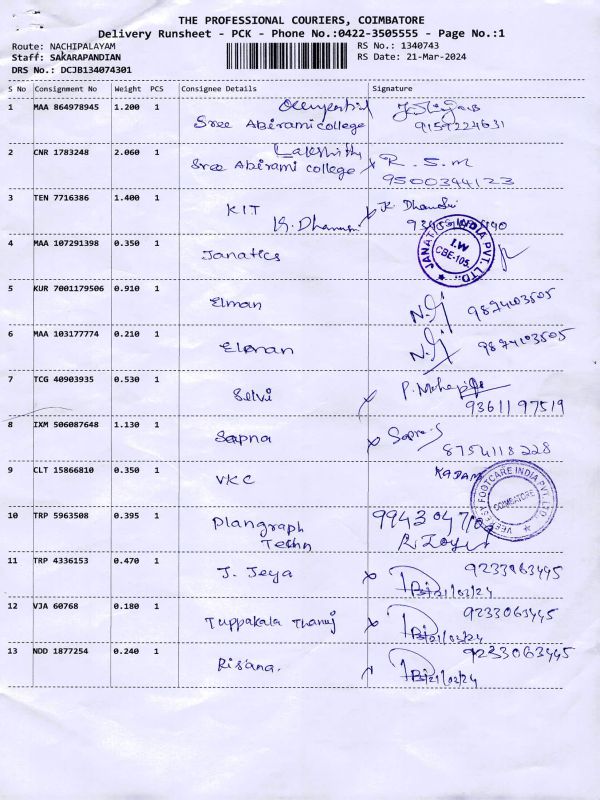 THE PROFESSIONAL COURIERS, COIMBATORE
Delivery Runsheet - PCK - Phone No.:0422-3505555 - Page No.:1
Route: NACHIPALAYAM RS No.: 1340743
Staff: SAKARAPANDIAN RS Date: 21-Mar-2024
DRS No.: DCJB134074301
S No Consignment No Weight PCS Consignee Details Signature
1 MAA 864978945 1.200 1
Sree Abirami college 9159224631
2 CNR 1783248 2.060 1 Lakshith R.S.M
Sree Abirami college 9500344123
3 TEN 7716386 1.400 1 KIT K. Dhanushri
K. Dhanushri
4 MAA 107291398 0.350 1 Janatics JANATICS INDIA PVT. LTD. I.W CBE-105.
5 KUR 7001179506 0.910 1 Elman 9874103505
6 MAA 103177774 0.210 1 Elman 9874103505
7 TCG 40903935 0.530 1 Selvi
9361197519
8 IXM 506087648 1.130 1 Sapna Sapna-S
8754118228
9 CLT 15866810 0.350 1 VKC KADAM
FOOTCARE INDIA PVT. LTD. COIMBATORE
10 TRP 5963508 0.395 1 Plangraph
Techn
11 TRP 4336153 0.470 1 J. Jeya 9233063445
21/03/24
12 VJA 60768 0.180 1 Tuppakala Thanuj 9233063445
21/03/24
13 NDD 1877254 0.240 1 Risana. 9233063445
21/03/24